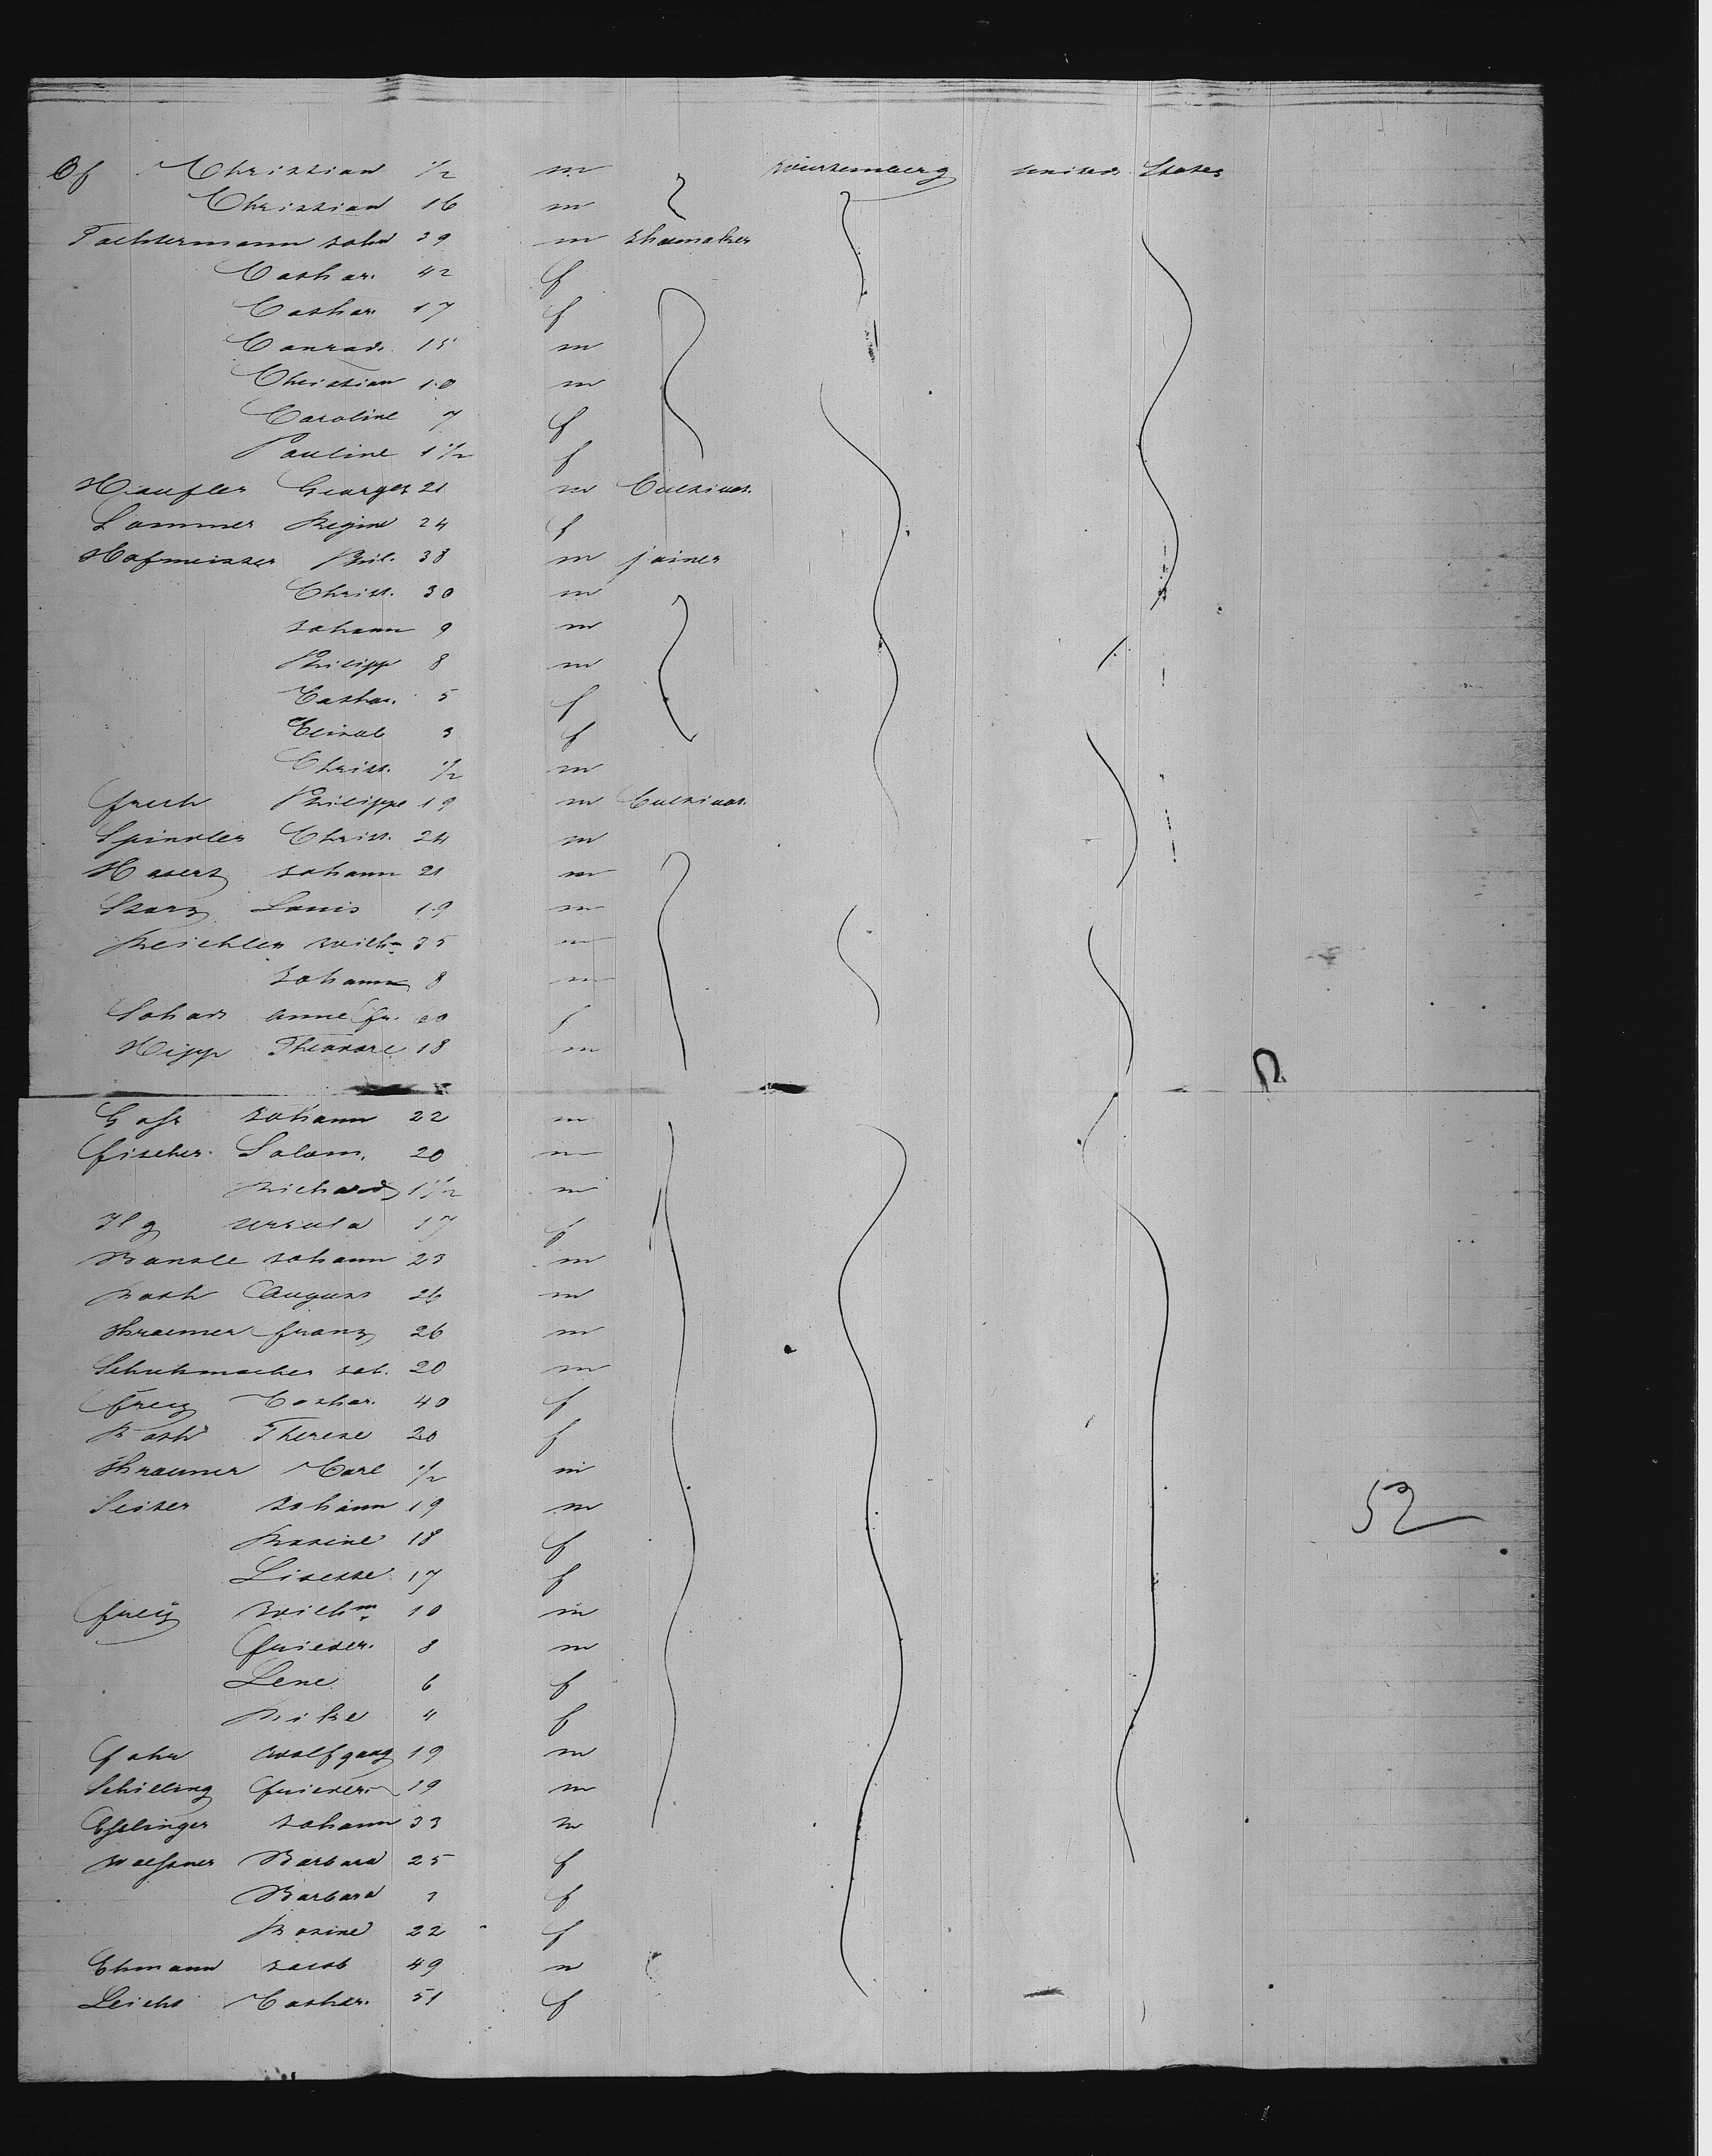 Of Christian 1/2 m Würtemberg united States
Christian 16 m
Tochtermann Joh. 39 m Shoemaker
Cathar. 42 f
Cathar. 17 f
Conrad. 15 m
Christian 10 m
Caroline 7 f
Pauline 1 1/2 f
Haufler George 21 m Cultivat.
Lammer Regine 24 f
Hofmeister Phil. 38 m joiner
Christ. 30 m
Johann 9 m
Philipp 8 m
Cathar. 5 f
Elisab 3 f
Christ. 1/2 m
Frech Philippe 19 m Cultivat.
Spindler Christ. 24 m
Johann 21 m
Starz Louis 19 m
Reichler Wilhm 35 m
Johann 8 m
Anne f
Hipp Theodore 18 m
Johann 22 m
Fischer Salom. 20 m
Richard 1 1/2 m
Ilg Ursula 17 f
Bantle Johann 23 m
Roth August 26 m
Kraemer Franz 26 m
Schuhmacher Joh. 20 m
Frey Cathar. 40 f
Roth Therese 20 f
Kraemer Carl 1/2 m
Seiter Johann 19 m
Rosine 18 f
Lisette 17 f
Frey Wilhm 10 m
Frieder. 8 m
Lene 6 f
Rike 4 f
Wolfgang 19 m
Schilling Frieder. 19 m
Esslinger Johann 33 m
Waessner Barbara 25 f
Barbara f
Rosine 22 f
Ehmann Jacob 49 m
Leicht Cathar. 51 f
52